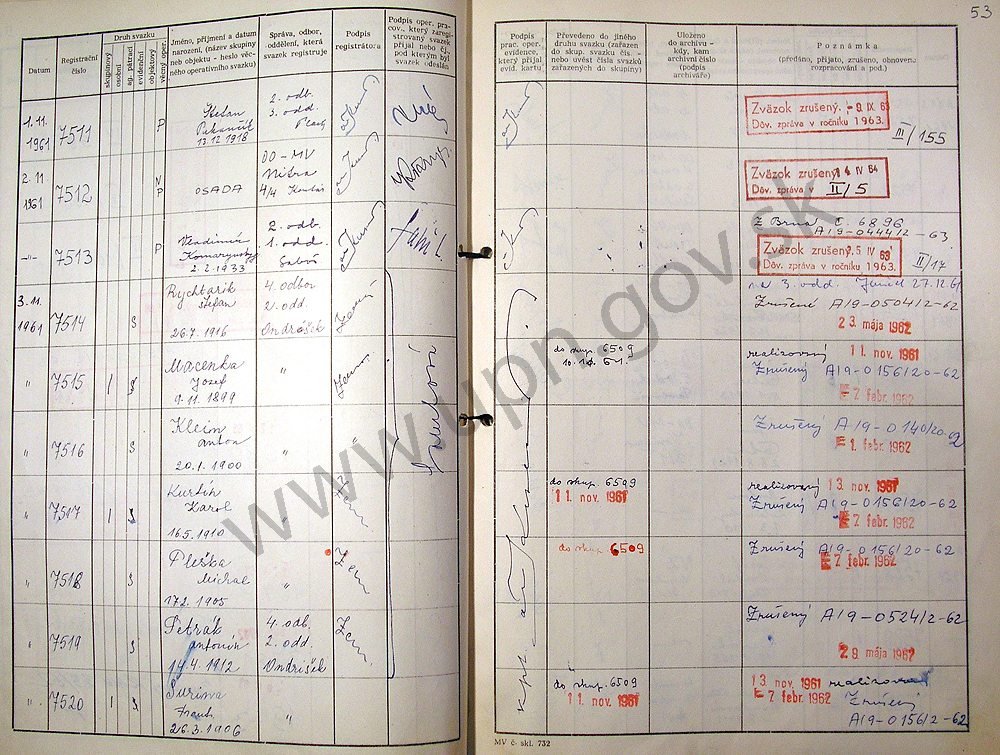 53
Datum
Registrační číslo
Druh svazku
skupinový
osobní
ag. pátrací
evidenční
objektový
věcný oper.
Jméno, příjmení a datum
narození, (název skupiny
neb objektu - heslo věc-
ného operativního svazku)
Správa, odbor,
oddělení, která
svazek registruje
Podpis
registrátora
Podpis oper. pra-
cov., který zaregi-
strovaný svazek
přijal nebo čj.
pod kterým byl
svazek odeslán
Podpis
prac. oper.
evidence,
který přijal
evid. kartu
Převedeno do jiného
druhu svazku (zařazen
do skup. svazku čís. -
nebo uvést čísla svazků
zařazených do skupiny)
Uloženo
do archivu -
kdy, kam
archivní číslo
(podpis
archiváře)
Poznámka
(předáno, přijato, zrušeno, obnoveno
rozpracování a pod.)
1.11.
1961
7511
P
Štefan
13.12.1918
2. odb.
3. odd.
Zväzok zrušený. - 9. IX 63
Dův. zpráva v ročníku 1963.
III/155
2.11
1961
7512
N
P
OSADA
OO-MV
Nitra
4/4
Zväzok zrušený 4 IV 64
Dův. zpráva v II/5
-"-
7513
P
Vladimír
2.2.1933
2. odb.
1. odd.
Z Brna č. 6896
A/9-0444/2-63
Zväzok zrušený. 5 IV 63
Dův. zpráva v ročníku 1963.
II/17
3. odd. 27.12.61
3.11.
1961
7514
S
Rychtárik
Štefan
26.7.1916
4. odbor
2. odd.
Ondrášek
Zrušené A/9-0504/2-62
23. mája 1962
"
7515
/
S
Macenka
Jozef
9.11.1899
"
do skup. 6509
realizovaný 11 nov. 1961
Zrušený A/9-0156/20-62
7 febr. 1962
"
7516
S
Klein
Anton
20.1.1900
"
Zrušený A/9-0140/20-62
1. febr. 1962
"
7517
/
S
Kurtík
Karol
16.5.1910
"
do skup. 6509
11 nov. 1961
realizovaný 13 nov. 1961
Zrušený A/9-0156/20-62
7 febr. 1962
"
7518
S
Pleška
Michal
17.2.1905
"
do skup. 6509
Zrušený A/9-0156/20-62
7 febr. 1962
"
7519
S
Petrák
Antonín
14.4.1912
4. odb.
2. odd.
Ondrášek
Zrušený A/9-0524/2-62
29 mája 1962
"
7520
/
S
Surina
26.3.1906
"
do skup. 6509
11 nov. 1961
13 nov. 1961 realizovaný
7 febr. 1962 Zrušený
A/9-0156/2-62
MV č. skl. 732
www.upn.gov.sk